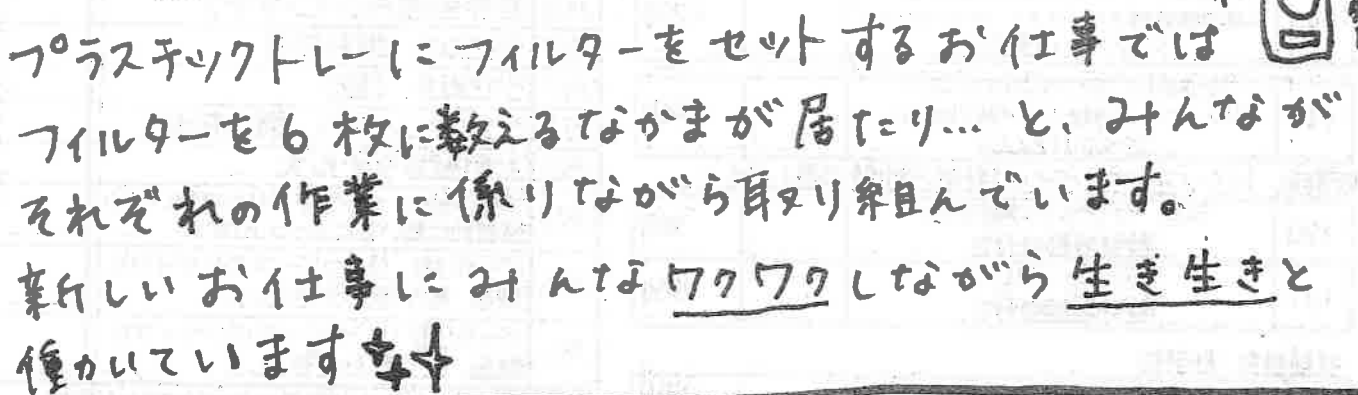 プラスチックトレーにフィルターをセットするお仕事では
フィルターを6枚に数えるなかまが居たり…と、みんなが
それぞれの作業に係りながら取り組んでいます。
新しいお仕事にみんなワクワクしながら生き生きと
働かいています